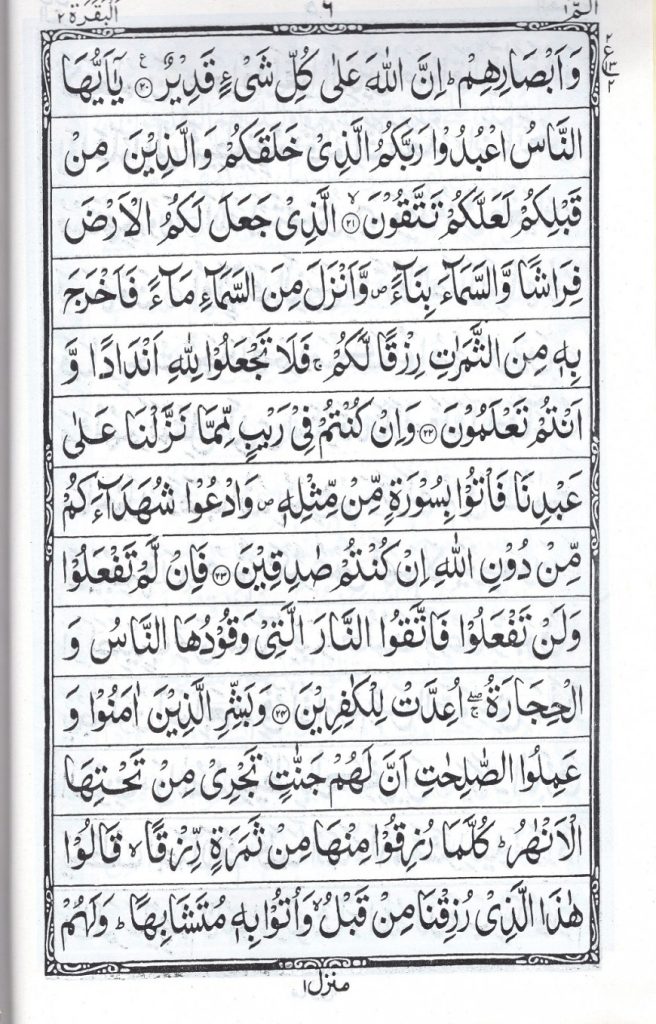 البقرة ٢
٦
الٓمّٓ ١
وَاَبْصَارِهِمْ ؕ اِنَّ اللّٰهَ عَلٰى كُلِّ شَیْءٍ قَدِیْرٌ ۟ع ﴿۲۰﴾ یٰۤاَیُّهَا
النَّاسُ اعْبُدُوْا رَبَّكُمُ الَّذِیْ خَلَقَكُمْ وَالَّذِیْنَ مِنْ
قَبْلِكُمْ لَعَلَّكُمْ تَتَّقُوْنَ ۙ﴿۲۱﴾ الَّذِیْ جَعَلَ لَكُمُ الْاَرْضَ
فِرَاشًا وَّالسَّمَآءَ بِنَآءً ۪ وَّاَنْزَلَ مِنَ السَّمَآءِ مَآءً فَاَخْرَجَ
بِهٖ مِنَ الثَّمَرٰتِ رِزْقًا لَّكُمْ ۚ فَلَا تَجْعَلُوْا لِلّٰهِ اَنْدَادًا وَّ
اَنْتُمْ تَعْلَمُوْنَ ﴿۲۲﴾ وَاِنْ كُنْتُمْ فِیْ رَیْبٍ مِّمَّا نَزَّلْنَا عَلٰى
عَبْدِنَا فَاْتُوْا بِسُوْرَةٍ مِّنْ مِّثْلِهٖ ۪ وَادْعُوْا شُهَدَآءَكُمْ
مِّنْ دُوْنِ اللّٰهِ اِنْ كُنْتُمْ صٰدِقِیْنَ ﴿۲۳﴾ فَاِنْ لَّمْ تَفْعَلُوْا
وَلَنْ تَفْعَلُوْا فَاتَّقُوا النَّارَ الَّتِیْ وَقُوْدُهَا النَّاسُ وَ
الْحِجَارَةُ ۖۚ اُعِدَّتْ لِلْكٰفِرِیْنَ ﴿۲۴﴾ وَبَشِّرِ الَّذِیْنَ اٰمَنُوْا وَ
عَمِلُوا الصّٰلِحٰتِ اَنَّ لَهُمْ جَنّٰتٍ تَجْرِیْ مِنْ تَحْتِهَا
الْاَنْهٰرُ ؕ كُلَّمَا رُزِقُوْا مِنْهَا مِنْ ثَمَرَةٍ رِّزْقًا ۙ قَالُوْا
هٰذَا الَّذِیْ رُزِقْنَا مِنْ قَبْلُ ۙ وَاُتُوْا بِهٖ مُتَشَابِهًا ؕ وَلَهُمْ
منزل ١